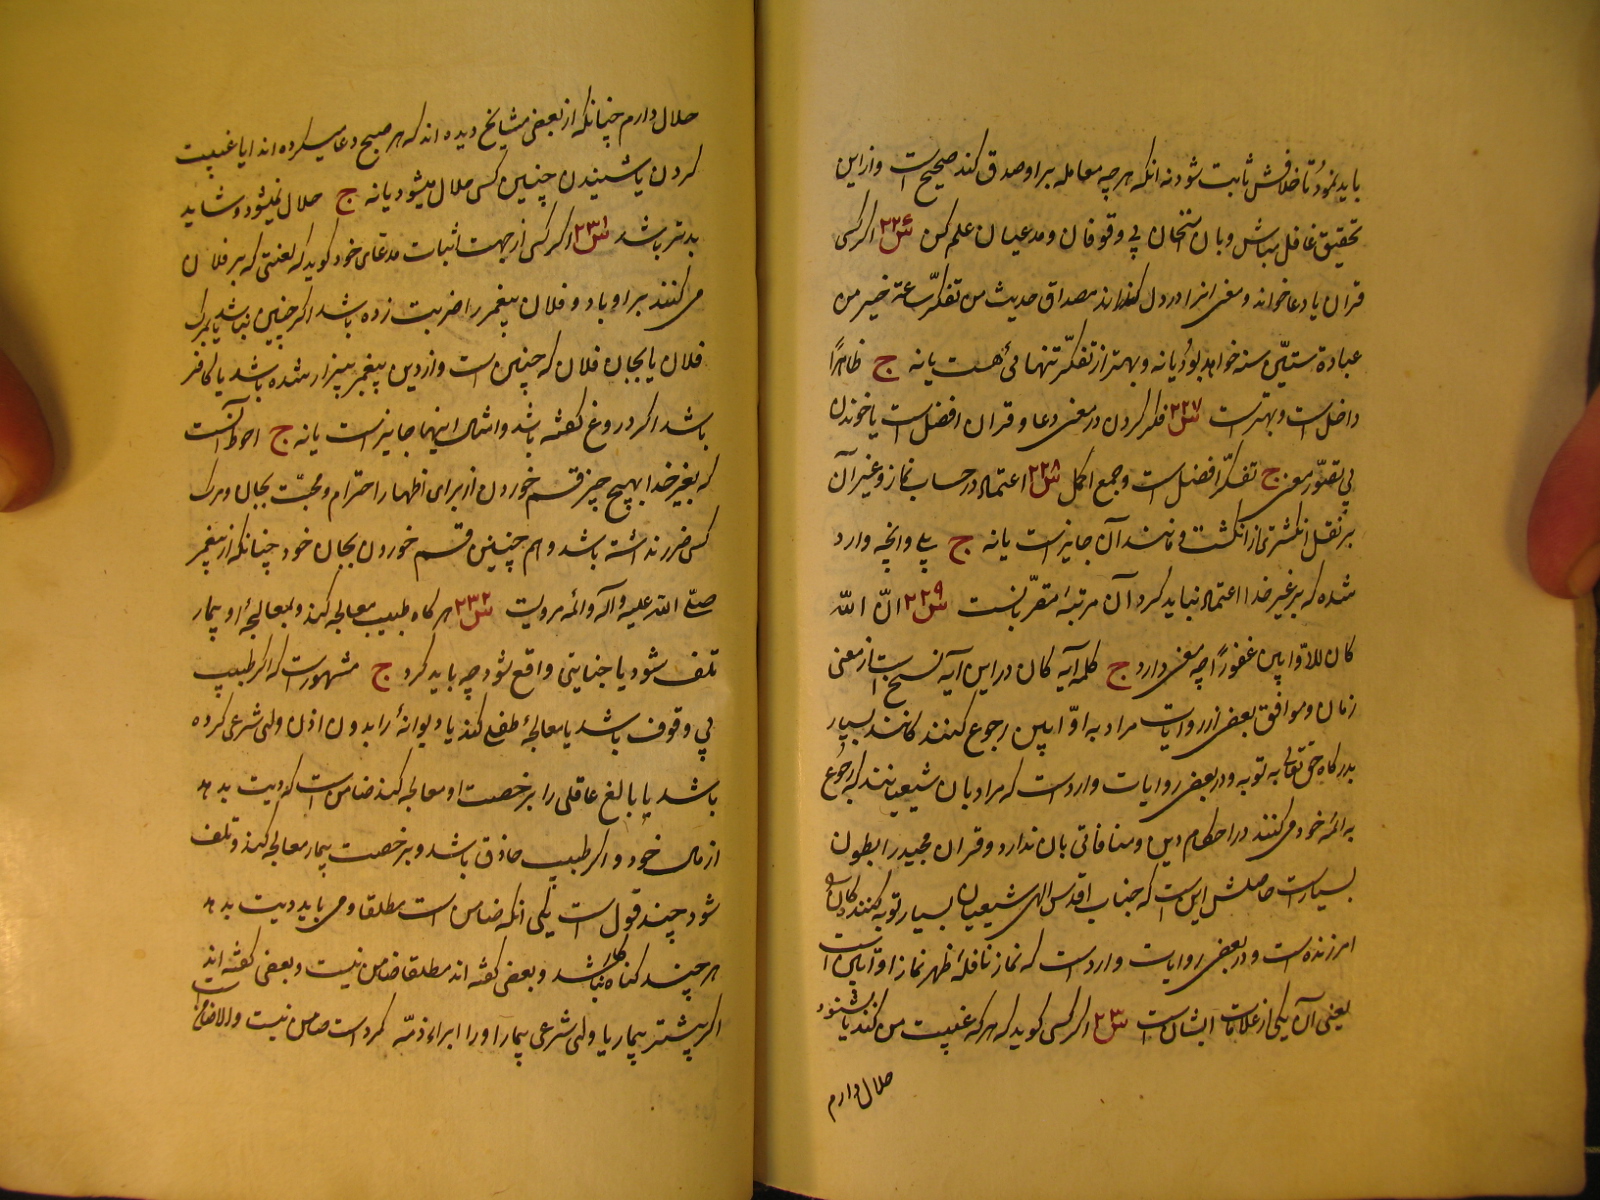 باید نمود تا خلافش ثابت شود نه انکه هر چه معامله برا و صدق کند صحیح است و از این
تحقیق غافل مباش و بان سخنان بی وقوفان و مدعیان علم مکن س۲۲۶ اکر کسی
قران یا دعا خواند و معنی انرا در دل کذراند مصداق حدیث من تفکّر ساعة خیر من
عبادة ستّین سنه خواهد بود یا نه و بهتر از تفکّر تنهائی هست یا نه ج ظاهرًا
داخل است و بهتر است س۲۲۷ فکر کردن در معنی دعا و قران افضل است یا خوندن
بی تصوّر معنی ج تفکّر افضل است و جمع اکمل س۲۲۸ اعتماد در حساب نماز و غیر آن
بر نقل انکشتر از انکشت و مانند آن جایز است یا نه ج بلی و انچه وارد
شده که بر غیر خدا اعتماد نباید کرد آن مرتبهٔ مقرّبانست س۲۲۹ انّ اللّه
کان للاوّابین غفورًا چه معنی دارد ج کلمه کان در این آیه منسلخ است از معنی
زمان و موافق بعضی از روایات مراد به اوّابین رجوع کنندکانند بسیار
بدرکاه حق تعالی به توبه و در بعضی روایات وارد است که مراد بان شیعیانند که رجوع
به ائمّه خود می کنند در احکام دین و منافاتی بان ندارد و قران مجید را بطون
بسیار است حاصلش این است که جناب اقدس الهی شیعیان بسیار توبه کنندکان را
امرزنده است و در بعضی روایات وارد است که نماز نافلهٔ ظهر نماز اوّابین است
یعنی آن یکی از علامات ایشان است س۲۳۰ اکر کسی کوید که هر که غیبت من کند یا شنود
حلال دارم
حلال دارم چنانکه از بعضی مشایخ دیده اند که هر صبح دعا میکرده اند ایا غیبت
کردن یا شنیدن چنین کسی حلال میشود یا نه ج حلال نمیشود و شاید
بدتر باشد س۲۳۱ اکر کسی از جهت اثبات مدعای خود کوید که لعنتی که بر فلان
می کنند برا و باد و فلان پیغمبر را ضربت زده باشد اکر چنین نباشد یا بمرک
فلان یا بجان فلان که چنین است و از دین پیغمبر بیزار شده باشد یا کافر
باشد اکر دروغ کفته باشد و امثال اینها جایز است یا نه ج احوط آنست
که بغیر خدا بهیچ چیز قسم خوردن از برای اظهار احترام و محبّت بجان و مرک
کسی ضرر نداشته باشد و هم چنین قسم خوردن بجان خود چنانکه از پیغمبر
صلّی اللّه علیه و آله و ائمه مرویست س۲۳۲ هر کاه طبیب معالجه کند و بمعالجهٔ او بیمار
تلف شود یا جنایتی واقع شود چه باید کرد ج مشهور است که اکر طبیب
بی وقوف باشد یا معالجهٔ طفلی کند یا دیوانهٔ را بدون اذن ولی شرعی کرده
باشد یا بالغ عاقلی را بی رخصت او معالجه کند ضامن است که دیت بدهد
از مال خود و اکر طبیب حاذق باشد و برخصت بیمار معالجه کند و تلف
شود چند قول است یکی انکه ضامن است مطلقا و می باید دیت بدهد
هر چند کناه کار نباشد و بعضی کفته اند مطلقا ضامن نیست و بعضی کفته اند
اکر پیشتر بیمار یا ولی شرعی بیمار او را ابراء ذمّه کرد است ضامن نیست و الا ضامن است